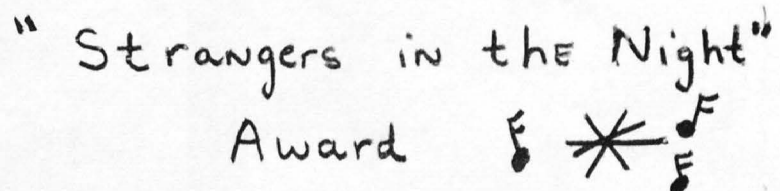 "Strangers in the Night"
Award